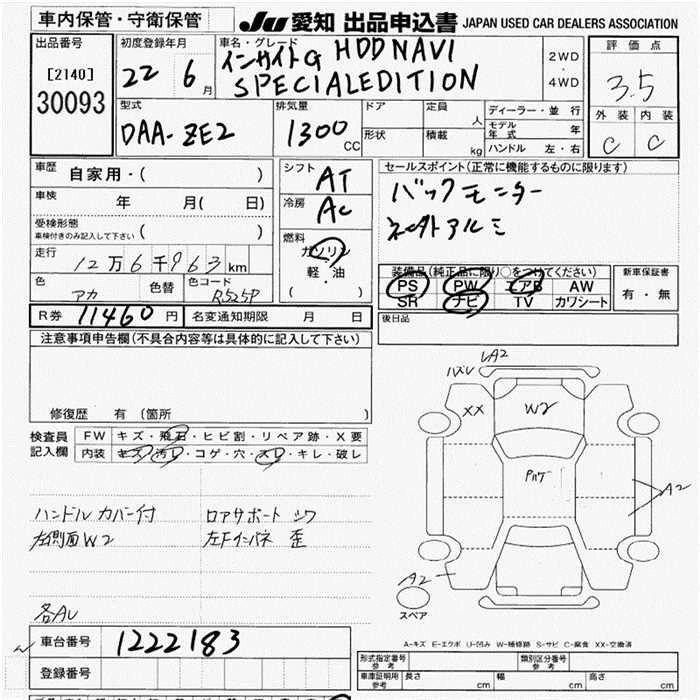 車内保管・守衛保管
JU 愛知 出品申込書 JAPAN USED CAR DEALERS ASSOCIATION
出品番号
[2140]
30093
初度登録年月
22 6月
車名・グレード
インサイト G HDD NAVI
SPECIAL EDITION
2WD
・
4WD
評価点
3.5
外装 内装
C C
型式
DAA-ZE2
排気量
1300 CC
ドア
定員
人
形状
積載
kg
ディーラー・並行
モデル年式 年
ハンドル 左・右
車歴
自家用・( )
車検
年 月( 日)
受検形態
車検付きのみ記入して下さい ( )
走行
12万6千963km
色
アカ
色替
色コード
R525P
シフト
AT
冷房
AC
燃料
ガソリン
軽・油
( )
セールスポイント(正常に機能するものに限ります)
バックモニター
社外アルミ
装備品(純正品に限り○をつけてください)
PS PW エアB AW
SR ナビ TV カワシート
新車保証書
有・無
R券 11460円
名変通知期限 月 日
後日品
注意事項申告欄(不具合内容等は具体的に記入して下さい)
修復歴 有(箇所 )
検査員
記入欄
FW キズ・飛石・ヒビ割・リペア跡・X要
内装 キズ・汚レ・コゲ・穴・スレ・キレ・破レ
ハンドルカバー付 ロアサポート シワ
右側面W2 左Fインパネ 歪
各AU
LA2
ハズレ
XX
W2
A2
A2
スペア
A-キズ E-エクボ U-凹み W-補修跡 S-サビ C-腐食 XX-交換済
車台番号 1222183
登録番号
形式指定番号
参考
類別区分番号
参考
車庫証明用
参考
長さ cm 幅 cm 高さ cm